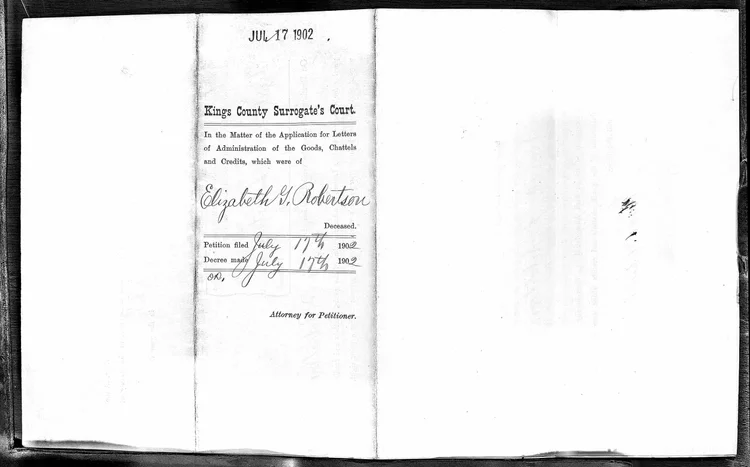 JUL 17 1902
Kings County Surrogate's Court.
In the Matter of the Application for Letters
of Administration of the Goods, Chattels
and Credits, which were of
Elizabeth G. Robertson
Deceased.
Petition filed July 17th 1902
Decree made July 17th 1902
Attorney for Petitioner.